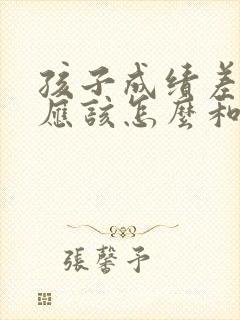 孩子成绩差
應該怎麼和
張馨予